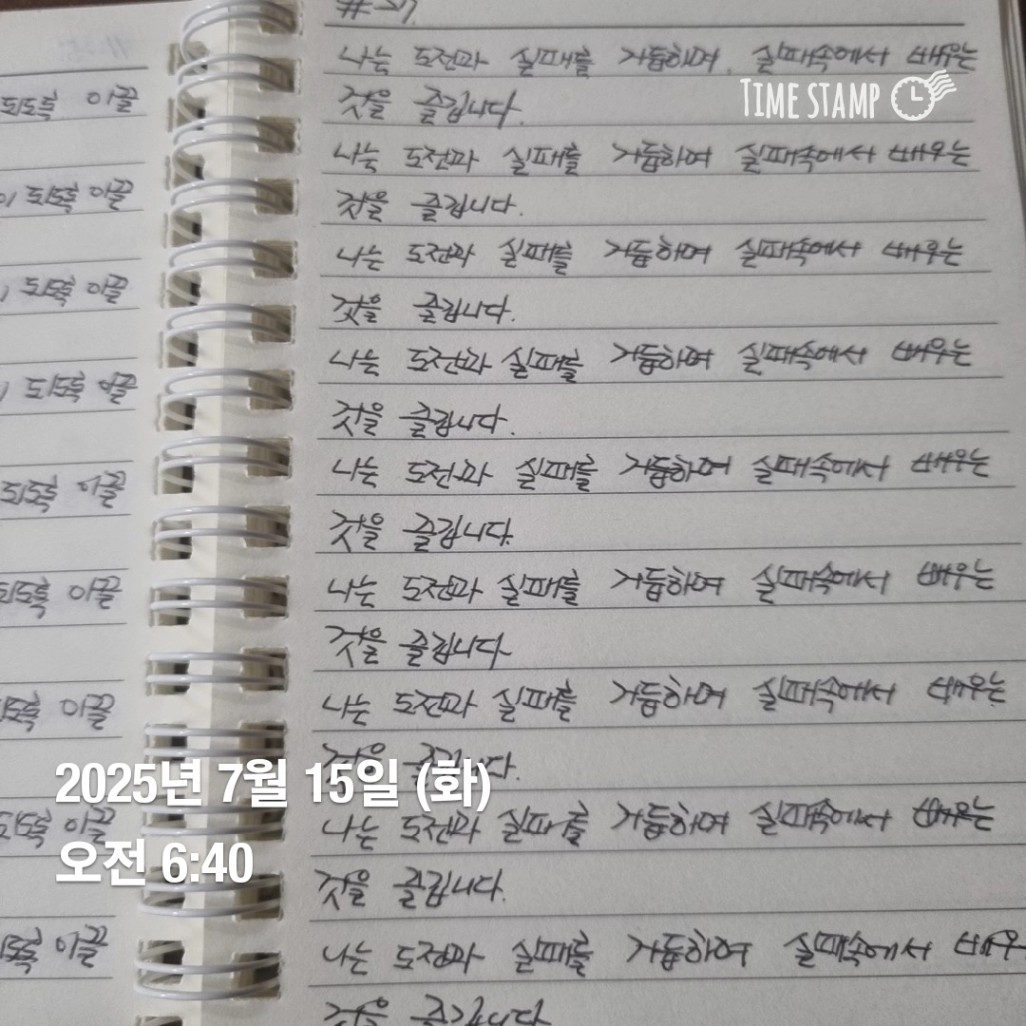 나는 도전과 실패를 거듭하며 실패속에서 배우는
것을 즐깁니다.
나는 도전과 실패를 거듭하며 실패속에서 배우는
것을 즐깁니다.
나는 도전과 실패를 거듭하며 실패속에서 배우는
것을 즐깁니다.
나는 도전과 실패를 거듭하며 실패속에서 배우는
것을 즐깁니다.
나는 도전과 실패를 거듭하며 실패속에서 배우는
것을 즐깁니다.
나는 도전과 실패를 거듭하며 실패속에서 배우는
것을 즐깁니다.
나는 도전과 실패를 거듭하며 실패속에서 배우는
것을 즐깁니다.
나는 도전과 실패를 거듭하며 실패속에서 배우는
것을 즐깁니다.
나는 도전과 실패를 거듭하며 실패속에서 배우
것을 즐깁니다
되도록 이끌
되도록 이끌
되도록 이끌
되도록 이끌
되도록 이끌
되도록 이끌
되도록 이끌
되도록 이끌
되도록 이끌
TIME STAMP
2025년 7월 15일 (화)
오전 6:40